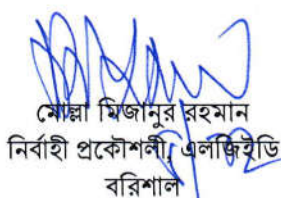 মোল্লা মিজানুর রহমান
নির্বাহী প্রকৌশলী, এলজিইডি
বরিশাল